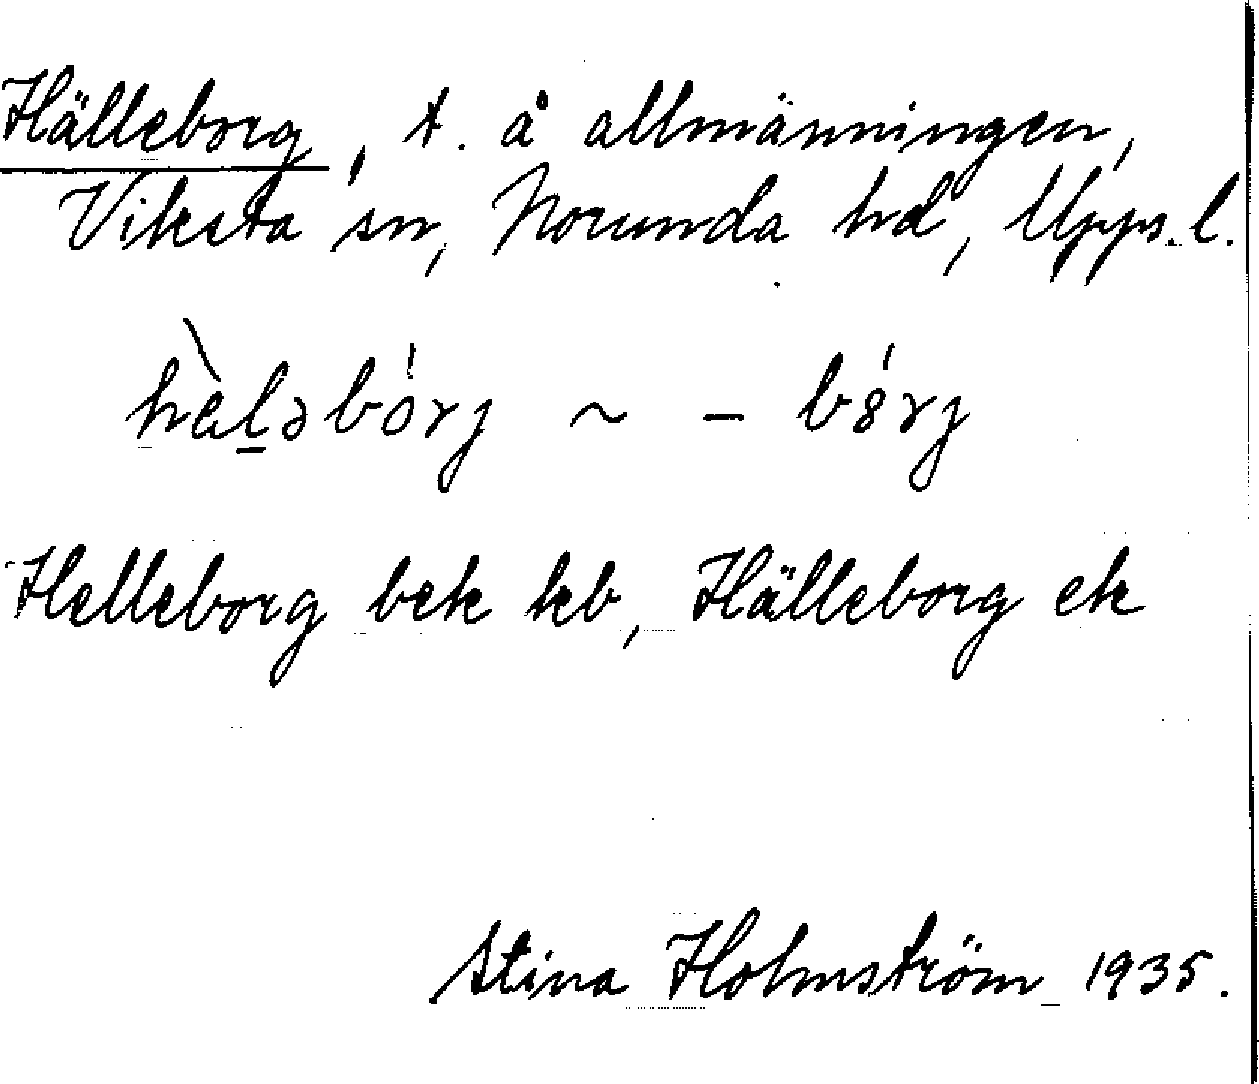 Hälleborg, t. å allmänningen,
Viksta sn, Norunda hd, Upps. l.
hàl̠əbórj ~ – bórj
Helleborg bek kb, Hälleborg ek
Stina Holmström 1935.